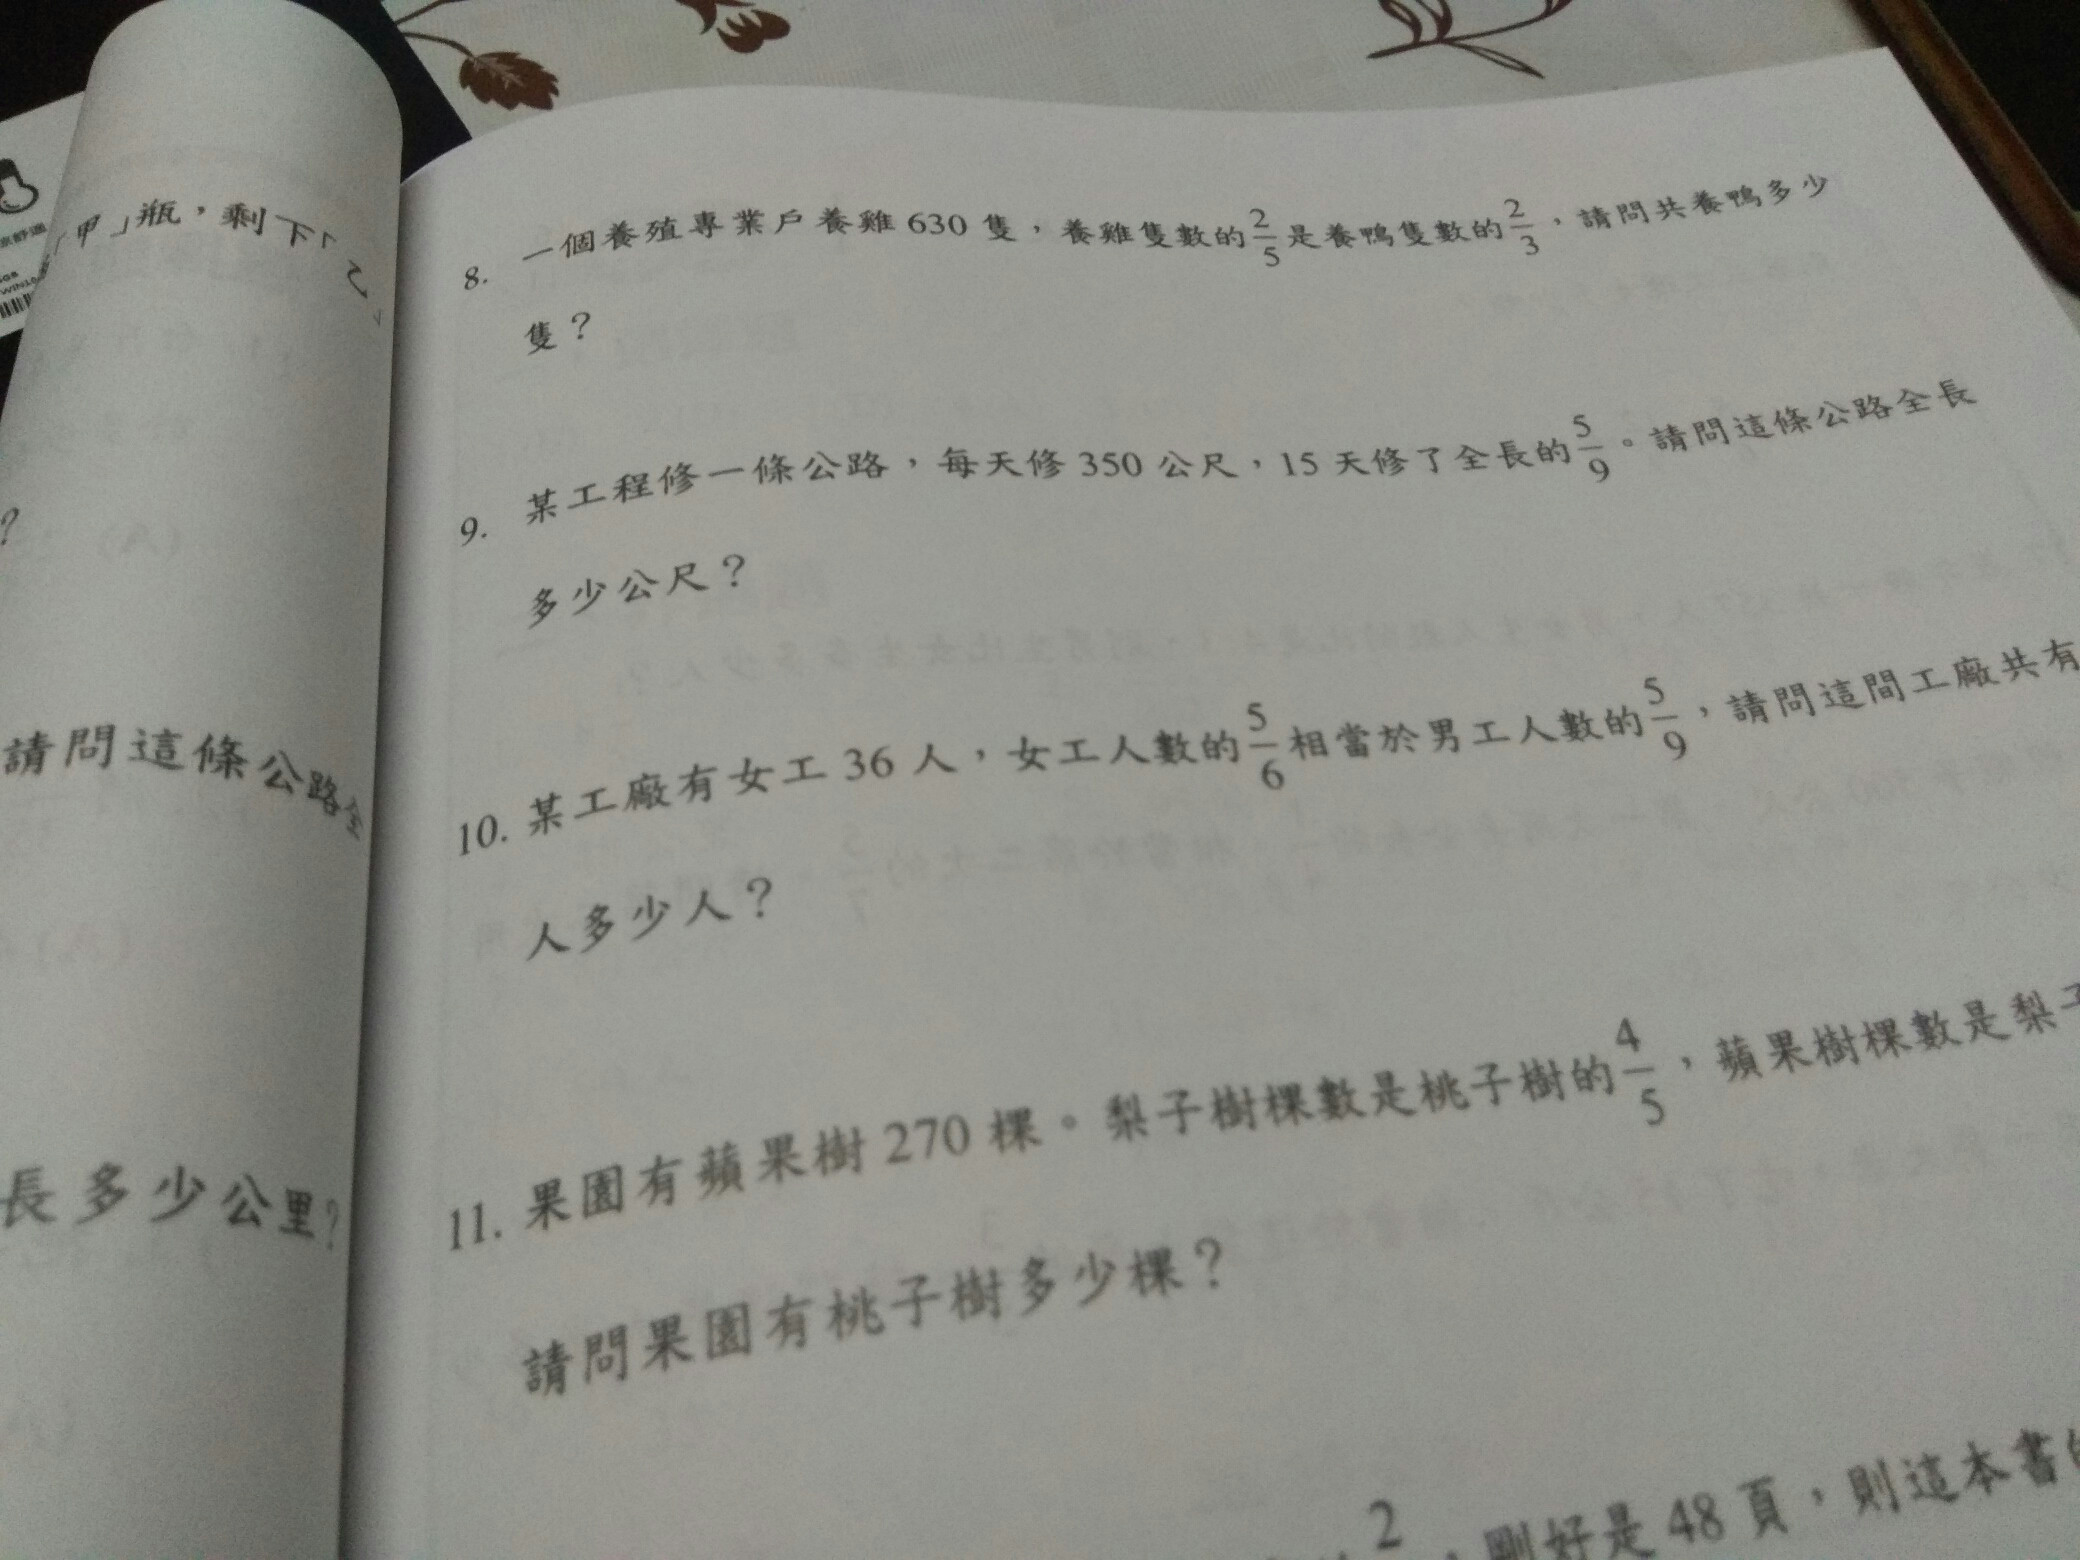 「甲」瓶，剩下「乙
?
請問這條公路全
長多少公里?
8. 一個養殖專業戶養雞630隻，養雞隻數的2/5是養鴨隻數的2/3，請問共養鴨多少
隻？
9. 某工程修一條公路，每天修350公尺，15天修了全長的5/9。請問這條公路全長
多少公尺？
10. 某工廠有女工36人，女工人數的5/6相當於男工人數的5/9，請問這間工廠共有
人多少人？
11. 果園有蘋果樹270棵。梨子樹棵數是桃子樹的4/5，蘋果樹棵數是梨子
請問果園有桃子樹多少棵？
2，剛好是48頁，則這本書的